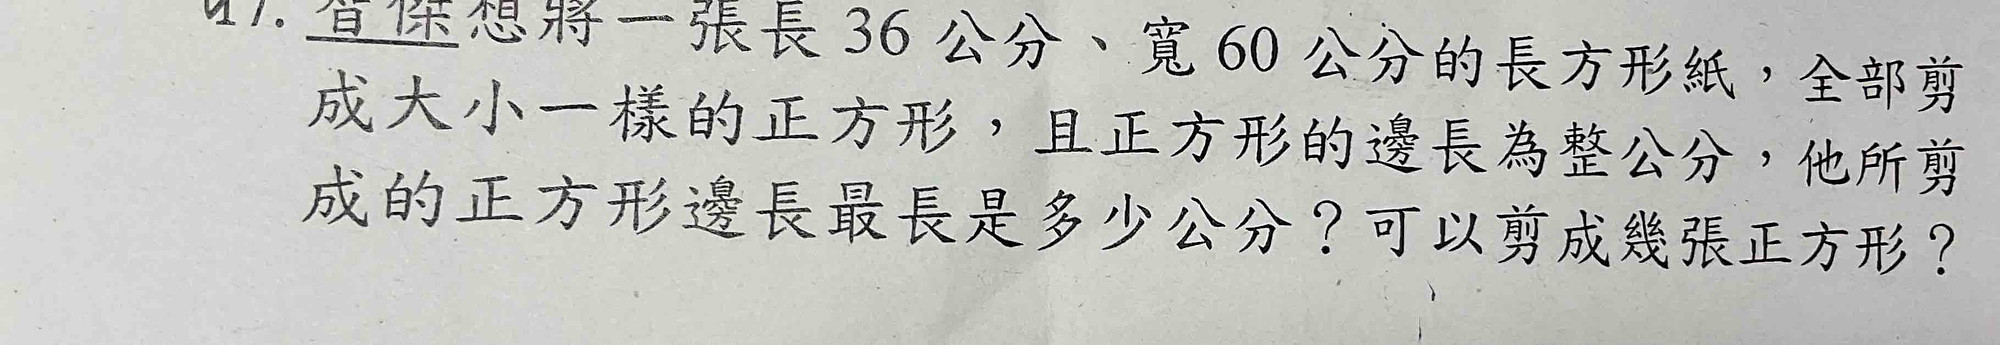 智傑想將一張長 36 公分、寬 60 公分的長方形紙，全部剪
成大小一樣的正方形，且正方形的邊長為整公分，他所剪
成的正方形邊長最長是多少公分？可以剪成幾張正方形？